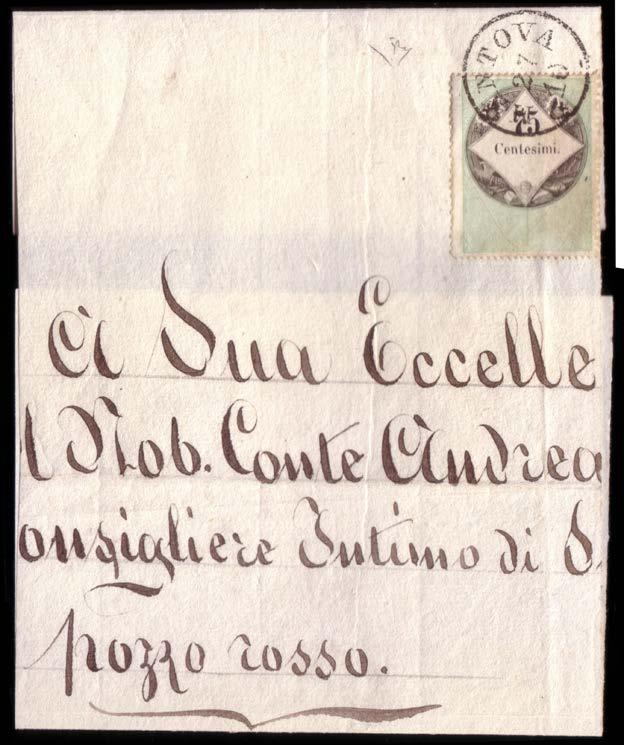 NTOVA
27
10
75
Centesimi.
A Sua Eccelle
l Nob. Conte Andrea
onsigliere Intimo di S.
pozzo rosso.